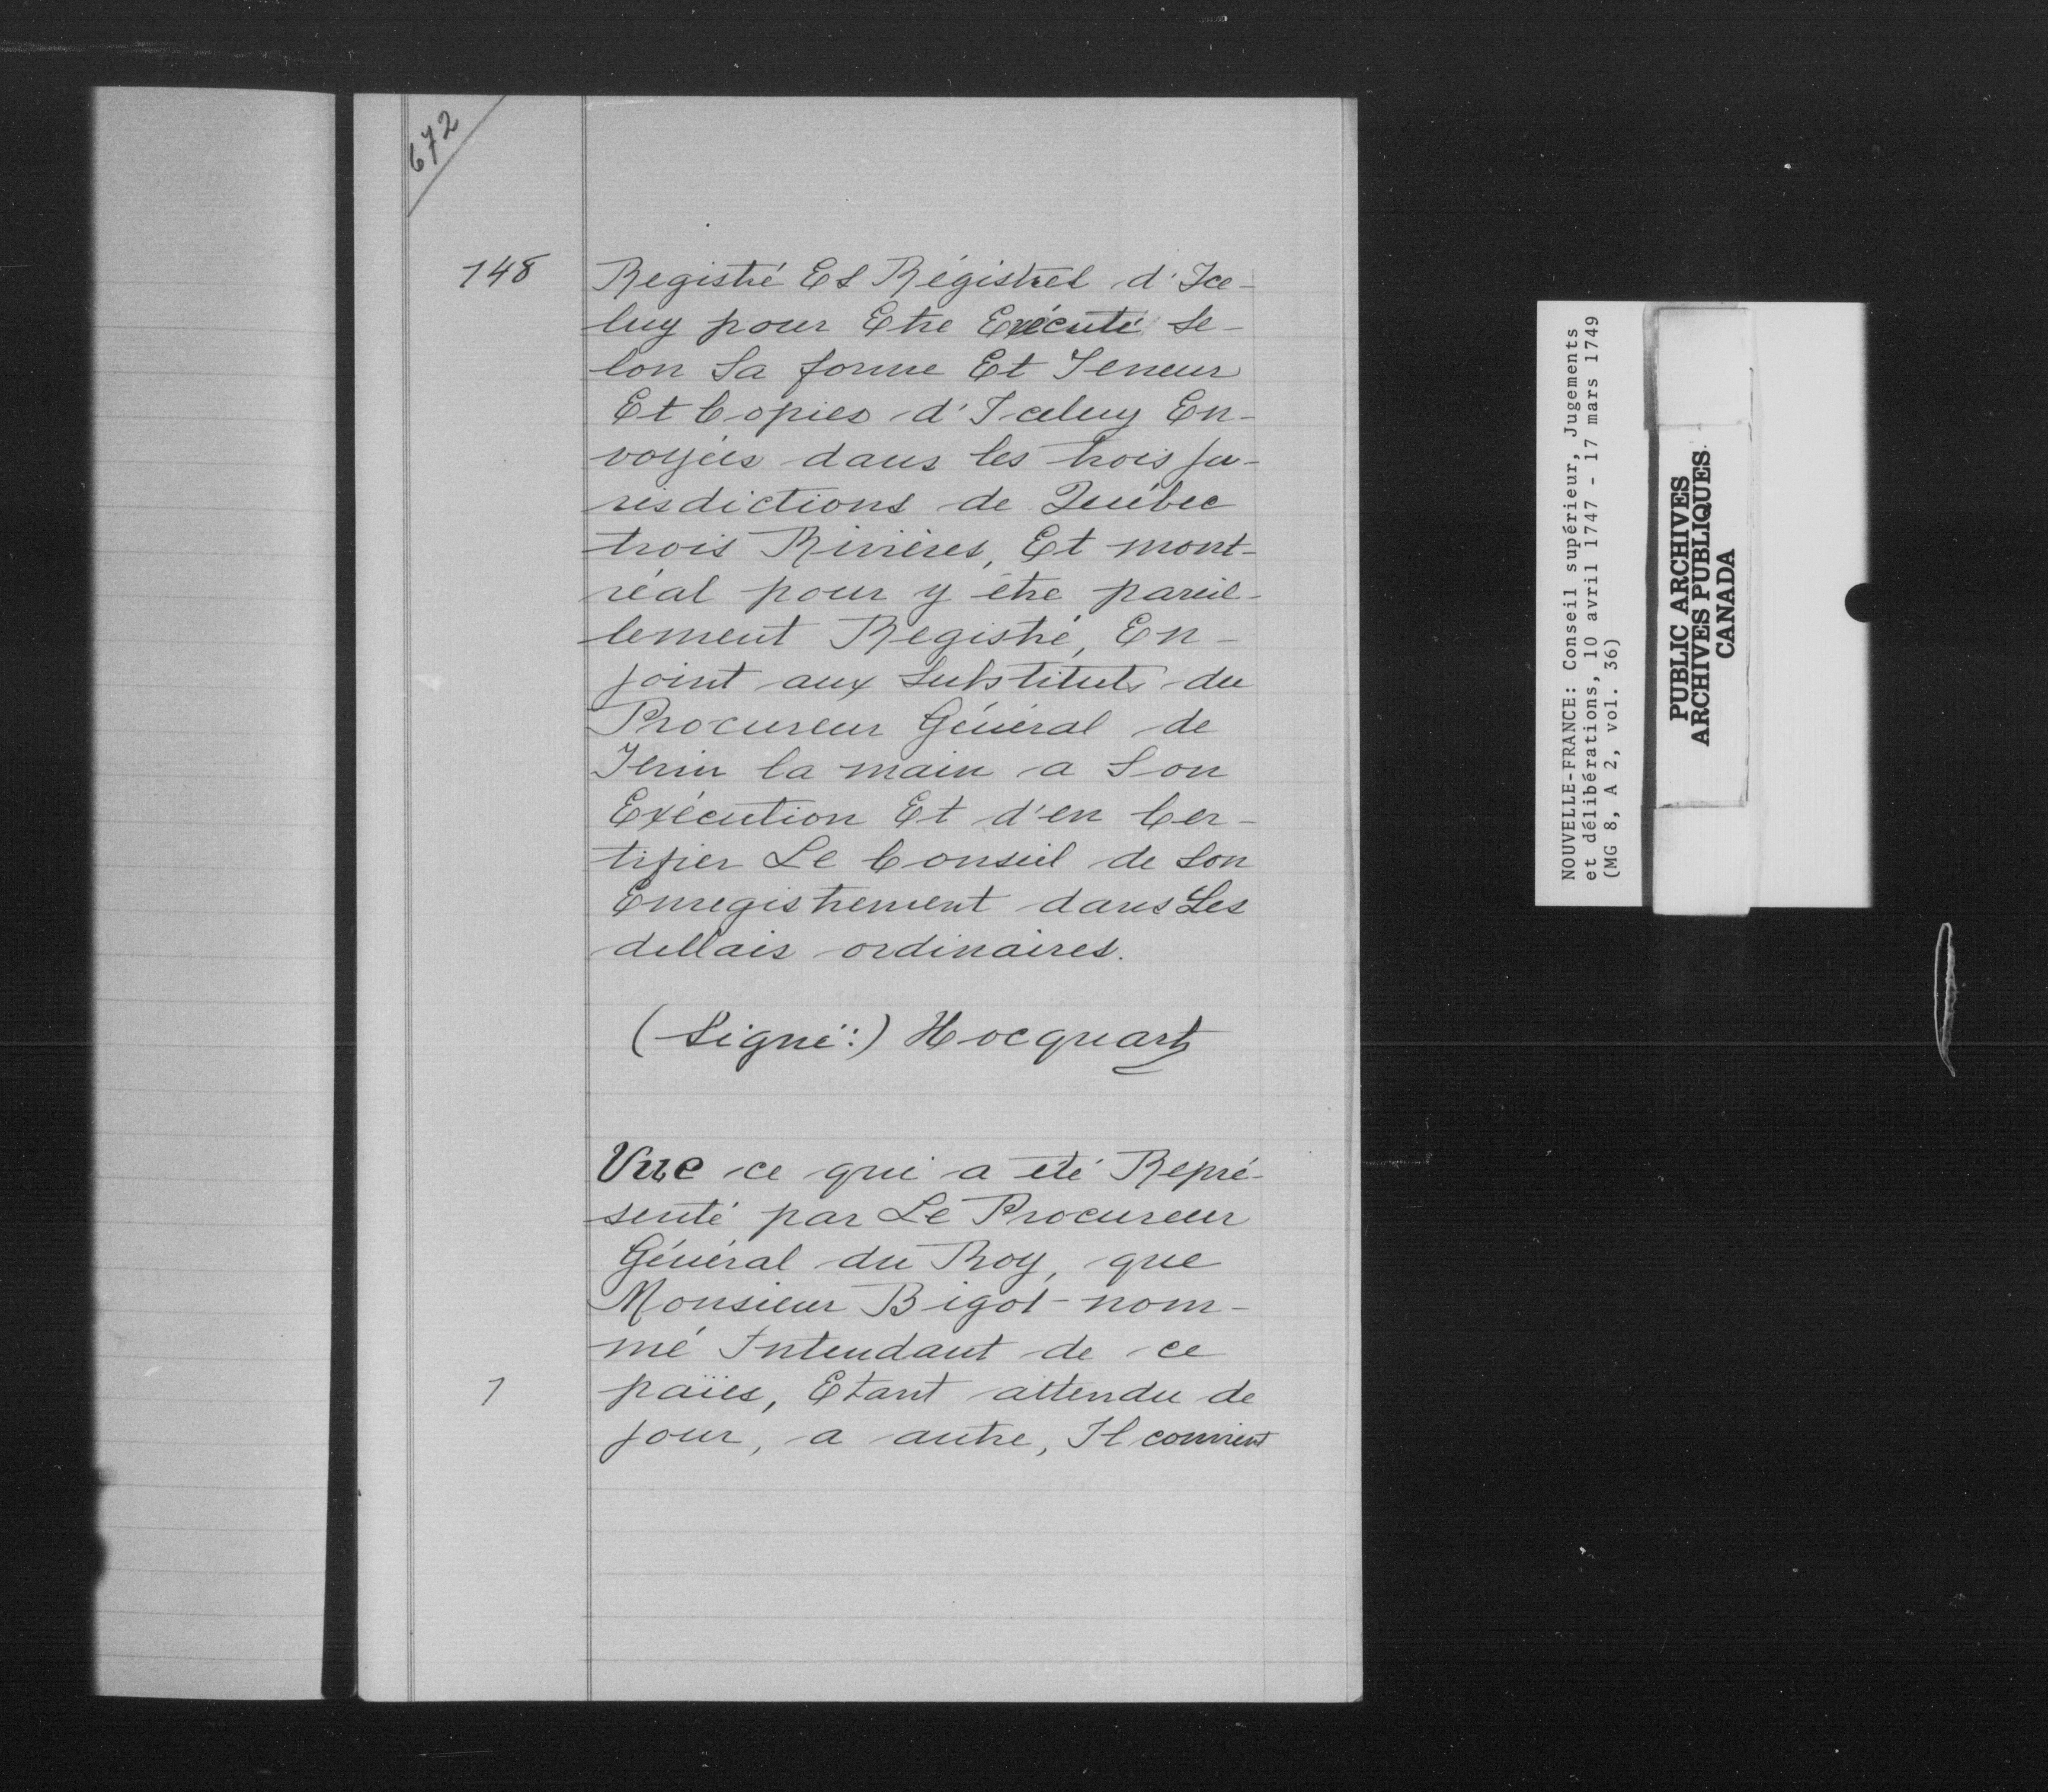 672
148
Registré Es Régistres d'Ice-
luy pour Etre Exécuté Se-
lon Sa forme Et Teneur
Et Copies d'Iceluy En-
voyées dans les trois Ju-
risdictions de Québec
trois Rivières, Et mont-
réal pour y être pareil-
lement Registré, En-
joint aux Substituts du
Procureur Général de
Tenir la main a Son
Exécution Et d'en Cer-
tifier Le Conseil de Son
Enregistrement dans Les
dellais ordinaires.
(Signé:) Hocquart
Vue ce qui a eté Repré-
senté par Le Procureur
Général du Roy, que
Monsieur Bigot nom-
mé Intendant de ce
païies, Etant attendu de
jour, a autre, Il convient
1
NOUVELLE-FRANCE: Conseil supérieur, Jugements
et délibérations, 10 avril 1747 - 17 mars 1749
(MG 8, A 2, vol. 36)
PUBLIC ARCHIVES
ARCHIVES PUBLIQUES
CANADA